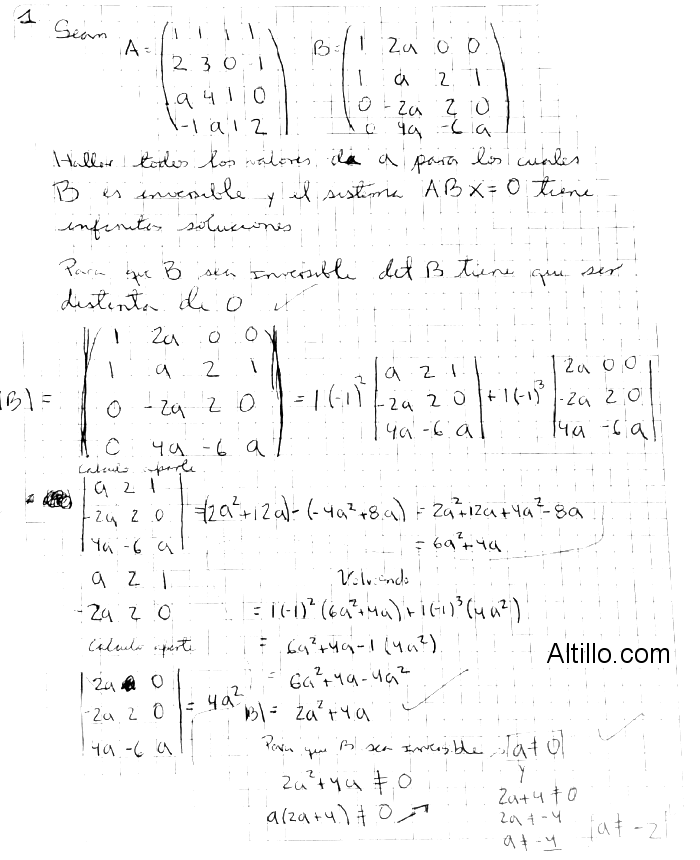 1 Sean A = (1 1 1 1 B = (1 2a 0 0
2 3 0 -1 1 a 2 1
a 4 1 0 0 -2a 2 0
-1 a 1 2) 0 4a -6 a)
Hallar todos los valores de a para los cuales
B es inversible y el sistema ABX=0 tiene
infinitas soluciones
Para que B sea inversible det B tiene que ser
distinta de 0
|B| = |1 2a 0 0
1 a 2 1
0 -2a 2 0
0 4a -6 a| = 1(-1)² |a 2 1
-2a 2 0
4a -6 a| + 1(-1)³ |2a 0 0
-2a 2 0
4a -6 a|
Calculo aparte
|a 2 1
-2a 2 0
4a -6 a| = (2a²+12a)-(-4a²+8a) = 2a²+12a+4a²-8a
= 6a²+4a
a 2 1
-2a 2 0
Volviendo
= 1(-1)²(6a²+4a)+1(-1)³(4a²)
= 6a²+4a-1(4a²)
= 6a²+4a-4a²
|B| = 2a²+4a
Calculo aparte
|2a 0
-2a 2 0
4a -6 a| = 4a²
Para que B sea inversible a≠0
2a²+4a ≠ 0
a(2a+4) ≠ 0
y
2a+4≠0
2a≠-4
a≠-4
a≠-2
Altillo.com